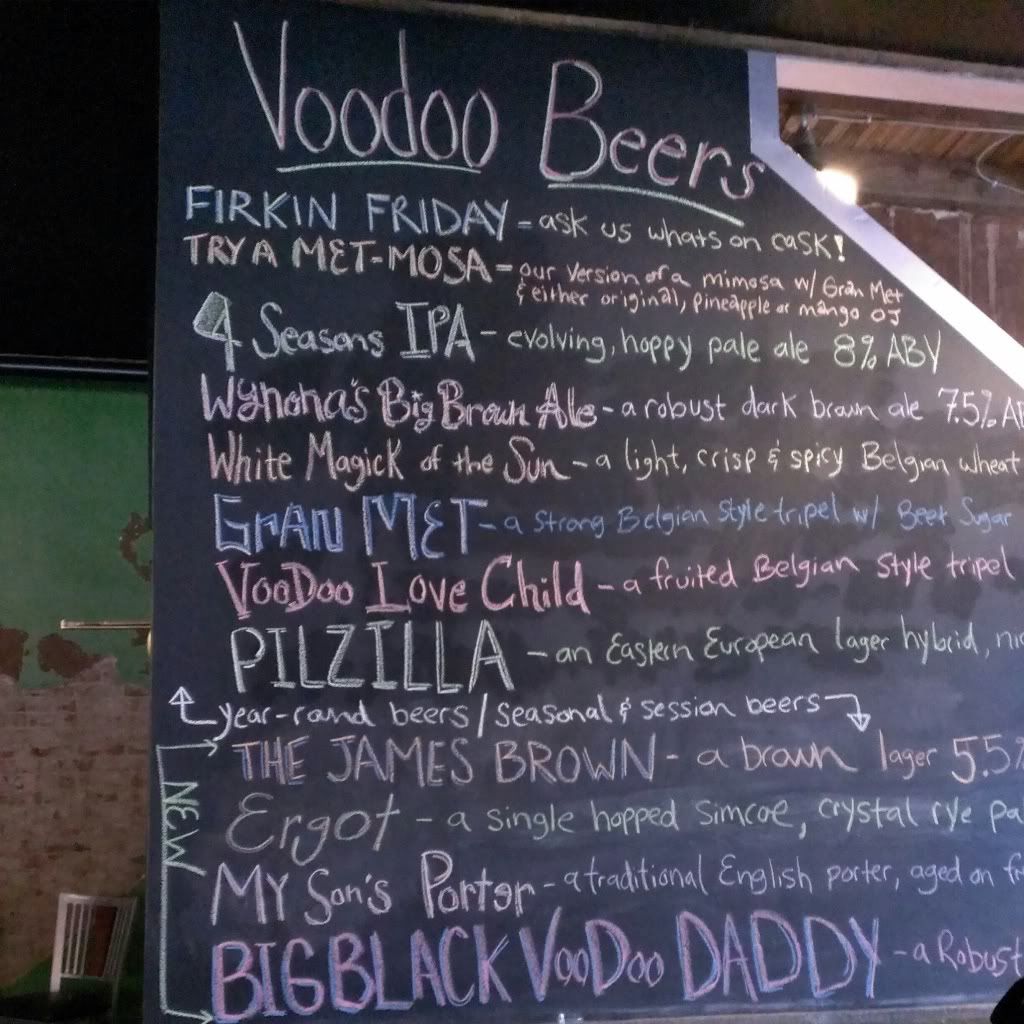 Voodoo Beers
FIRKIN FRIDAY - ask us whats on cask!
TRY A MET-MOSA - our version of a mimosa w/ Gran Met
& either original, pineapple or mango OJ
4 Seasons IPA - evolving, hoppy pale ale 8% ABV
Wynona's Big Brown Ale - a robust dark brown ale 7.5% AB
White Magick of the Sun - a light, crisp & spicy Belgian wheat
GRAN MET - a strong Belgian style tripel w/ Beet Sugar
VooDoo Love Child - a fruited Belgian style tripel
PILZILLA - an Eastern European lager hybrid,
year-round beers / seasonal & session beers
NEW
THE JAMES BROWN - a brown lager 5.5%
Ergot - a single hopped simcoe, crystal rye pa
My Son's Porter - a traditional English porter, aged on
BIG BLACK VOODOO DADDY - a Robust